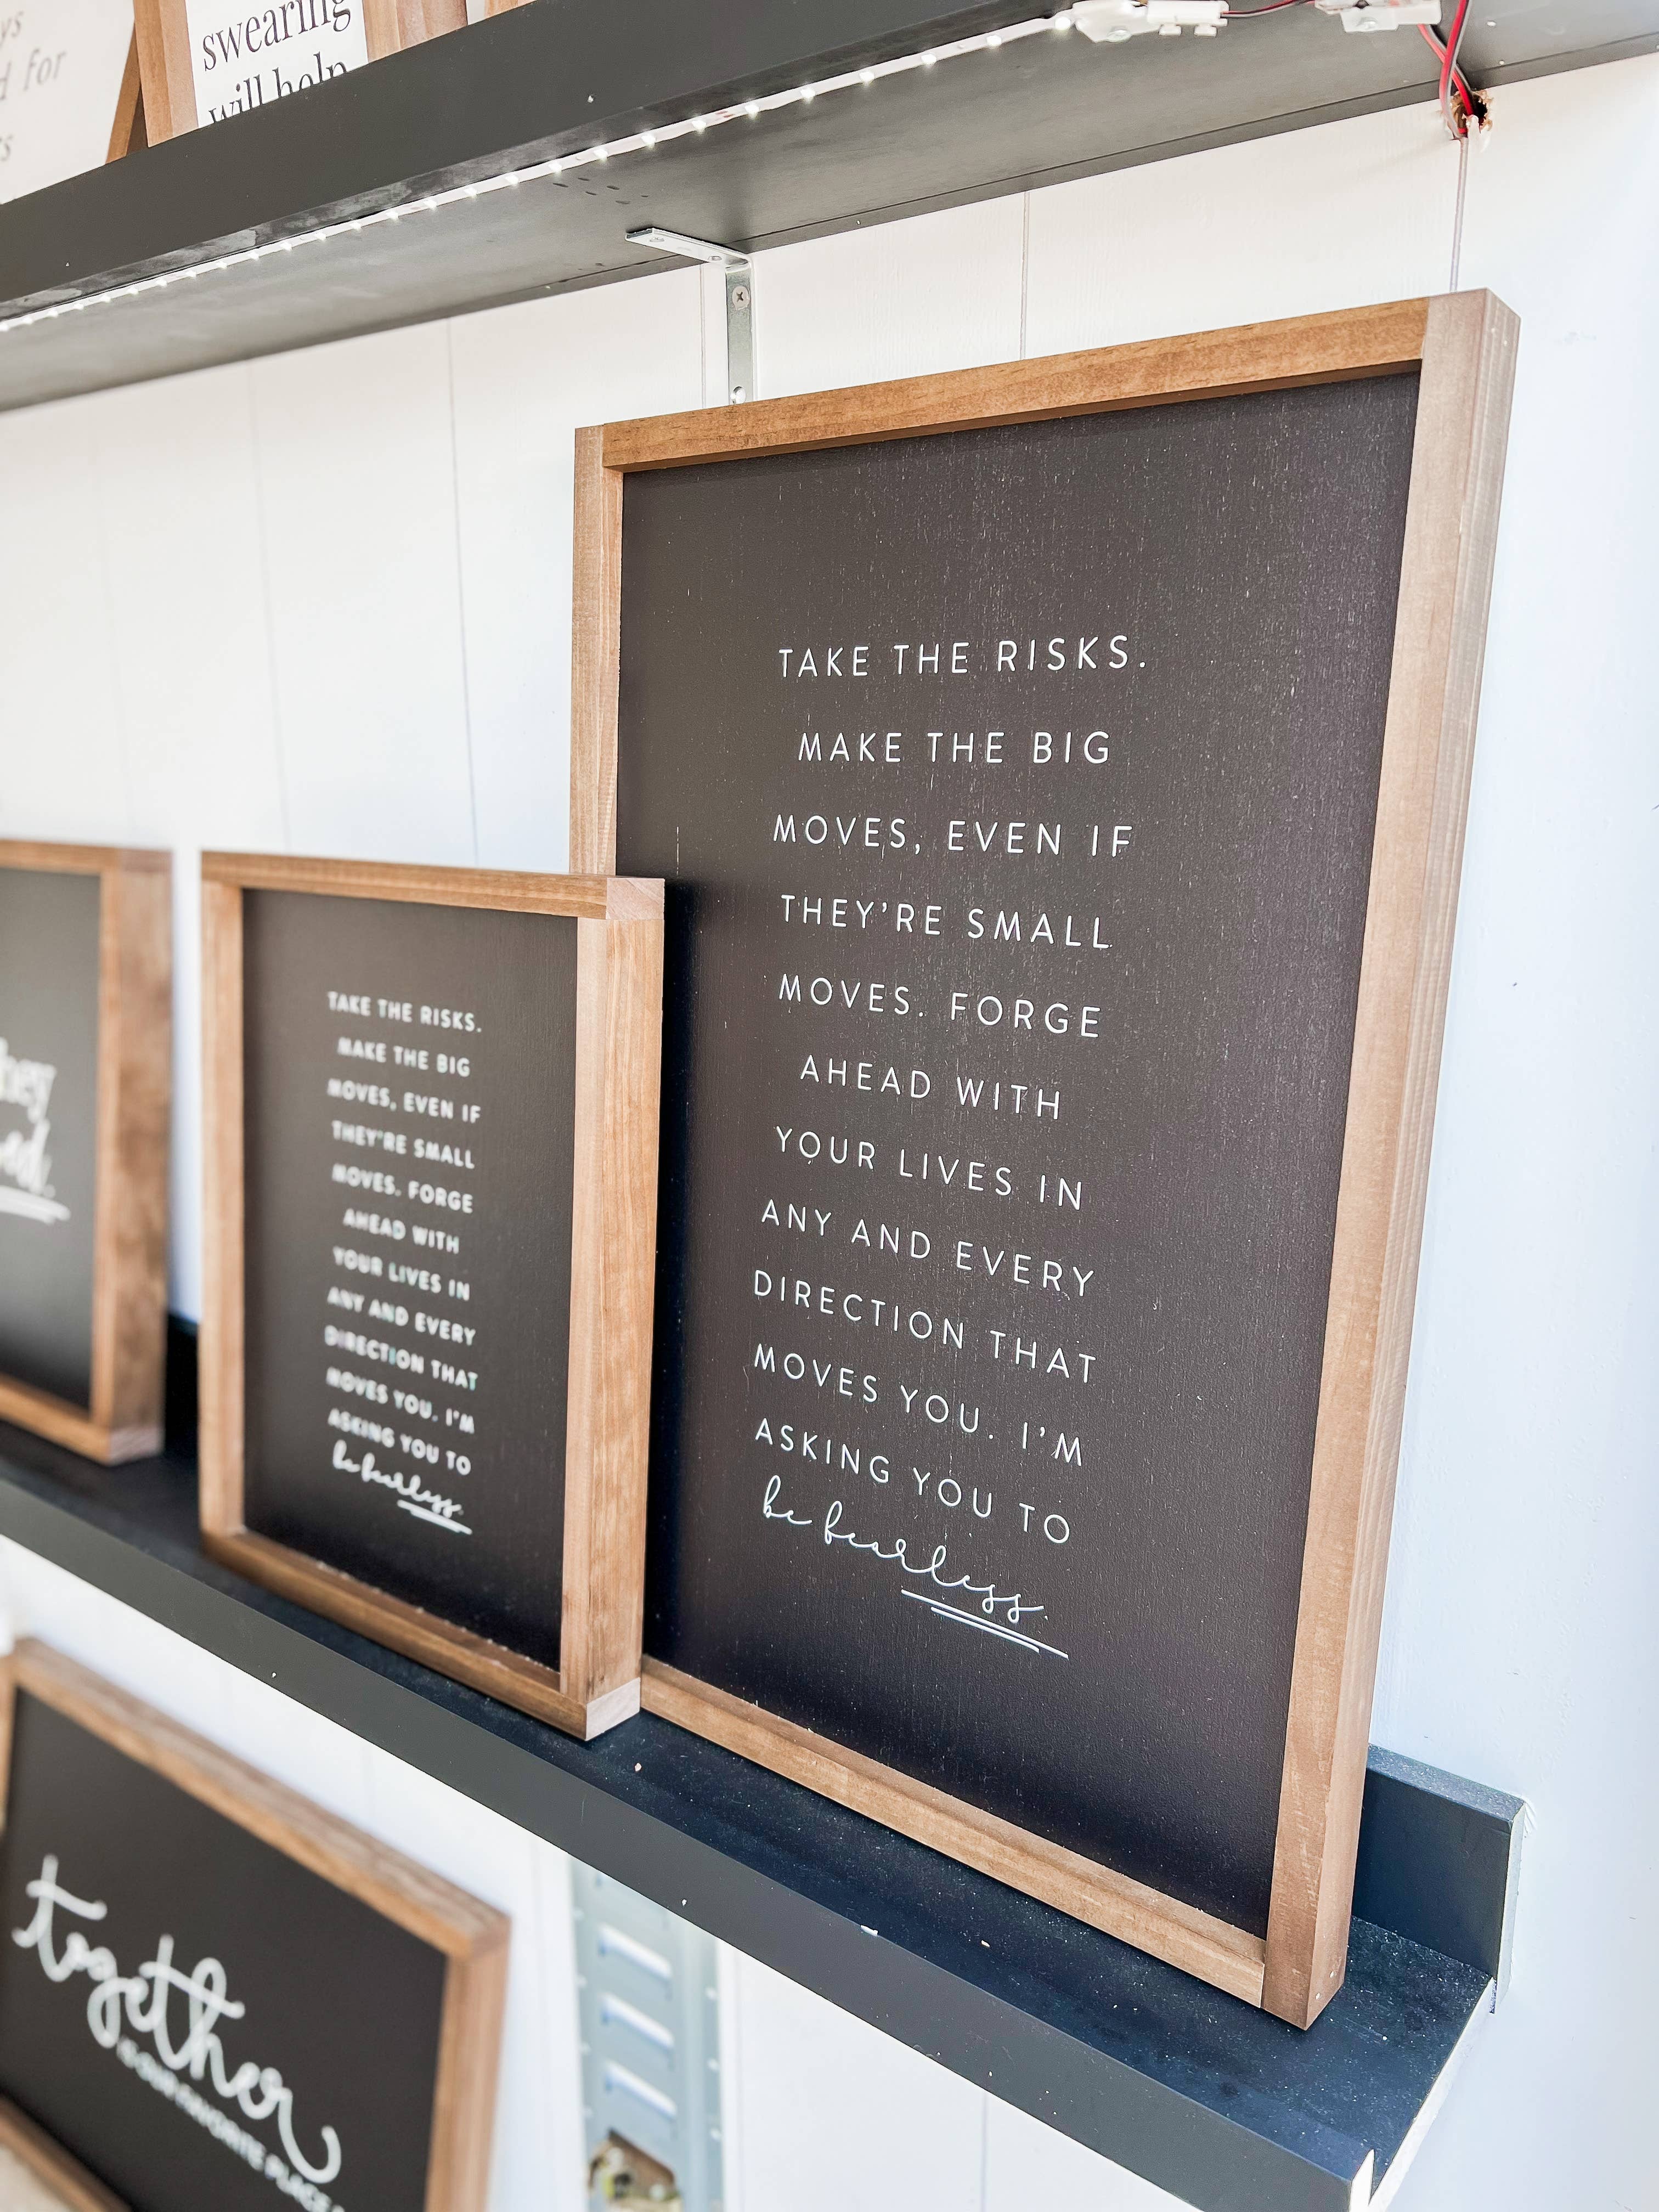 swearing
will help
for
TAKE THE RISKS.
MAKE THE BIG
MOVES, EVEN IF
THEY'RE SMALL
MOVES. FORGE
AHEAD WITH
YOUR LIVES IN
ANY AND EVERY
DIRECTION THAT
MOVES YOU. I'M
ASKING YOU TO
be fearless.
TAKE THE RISKS.
MAKE THE BIG
MOVES, EVEN IF
THEY'RE SMALL
MOVES. FORGE
AHEAD WITH
YOUR LIVES IN
ANY AND EVERY
DIRECTION THAT
MOVES YOU. I'M
ASKING YOU TO
be fearless.
together
IS OUR FAVORITE PLACE